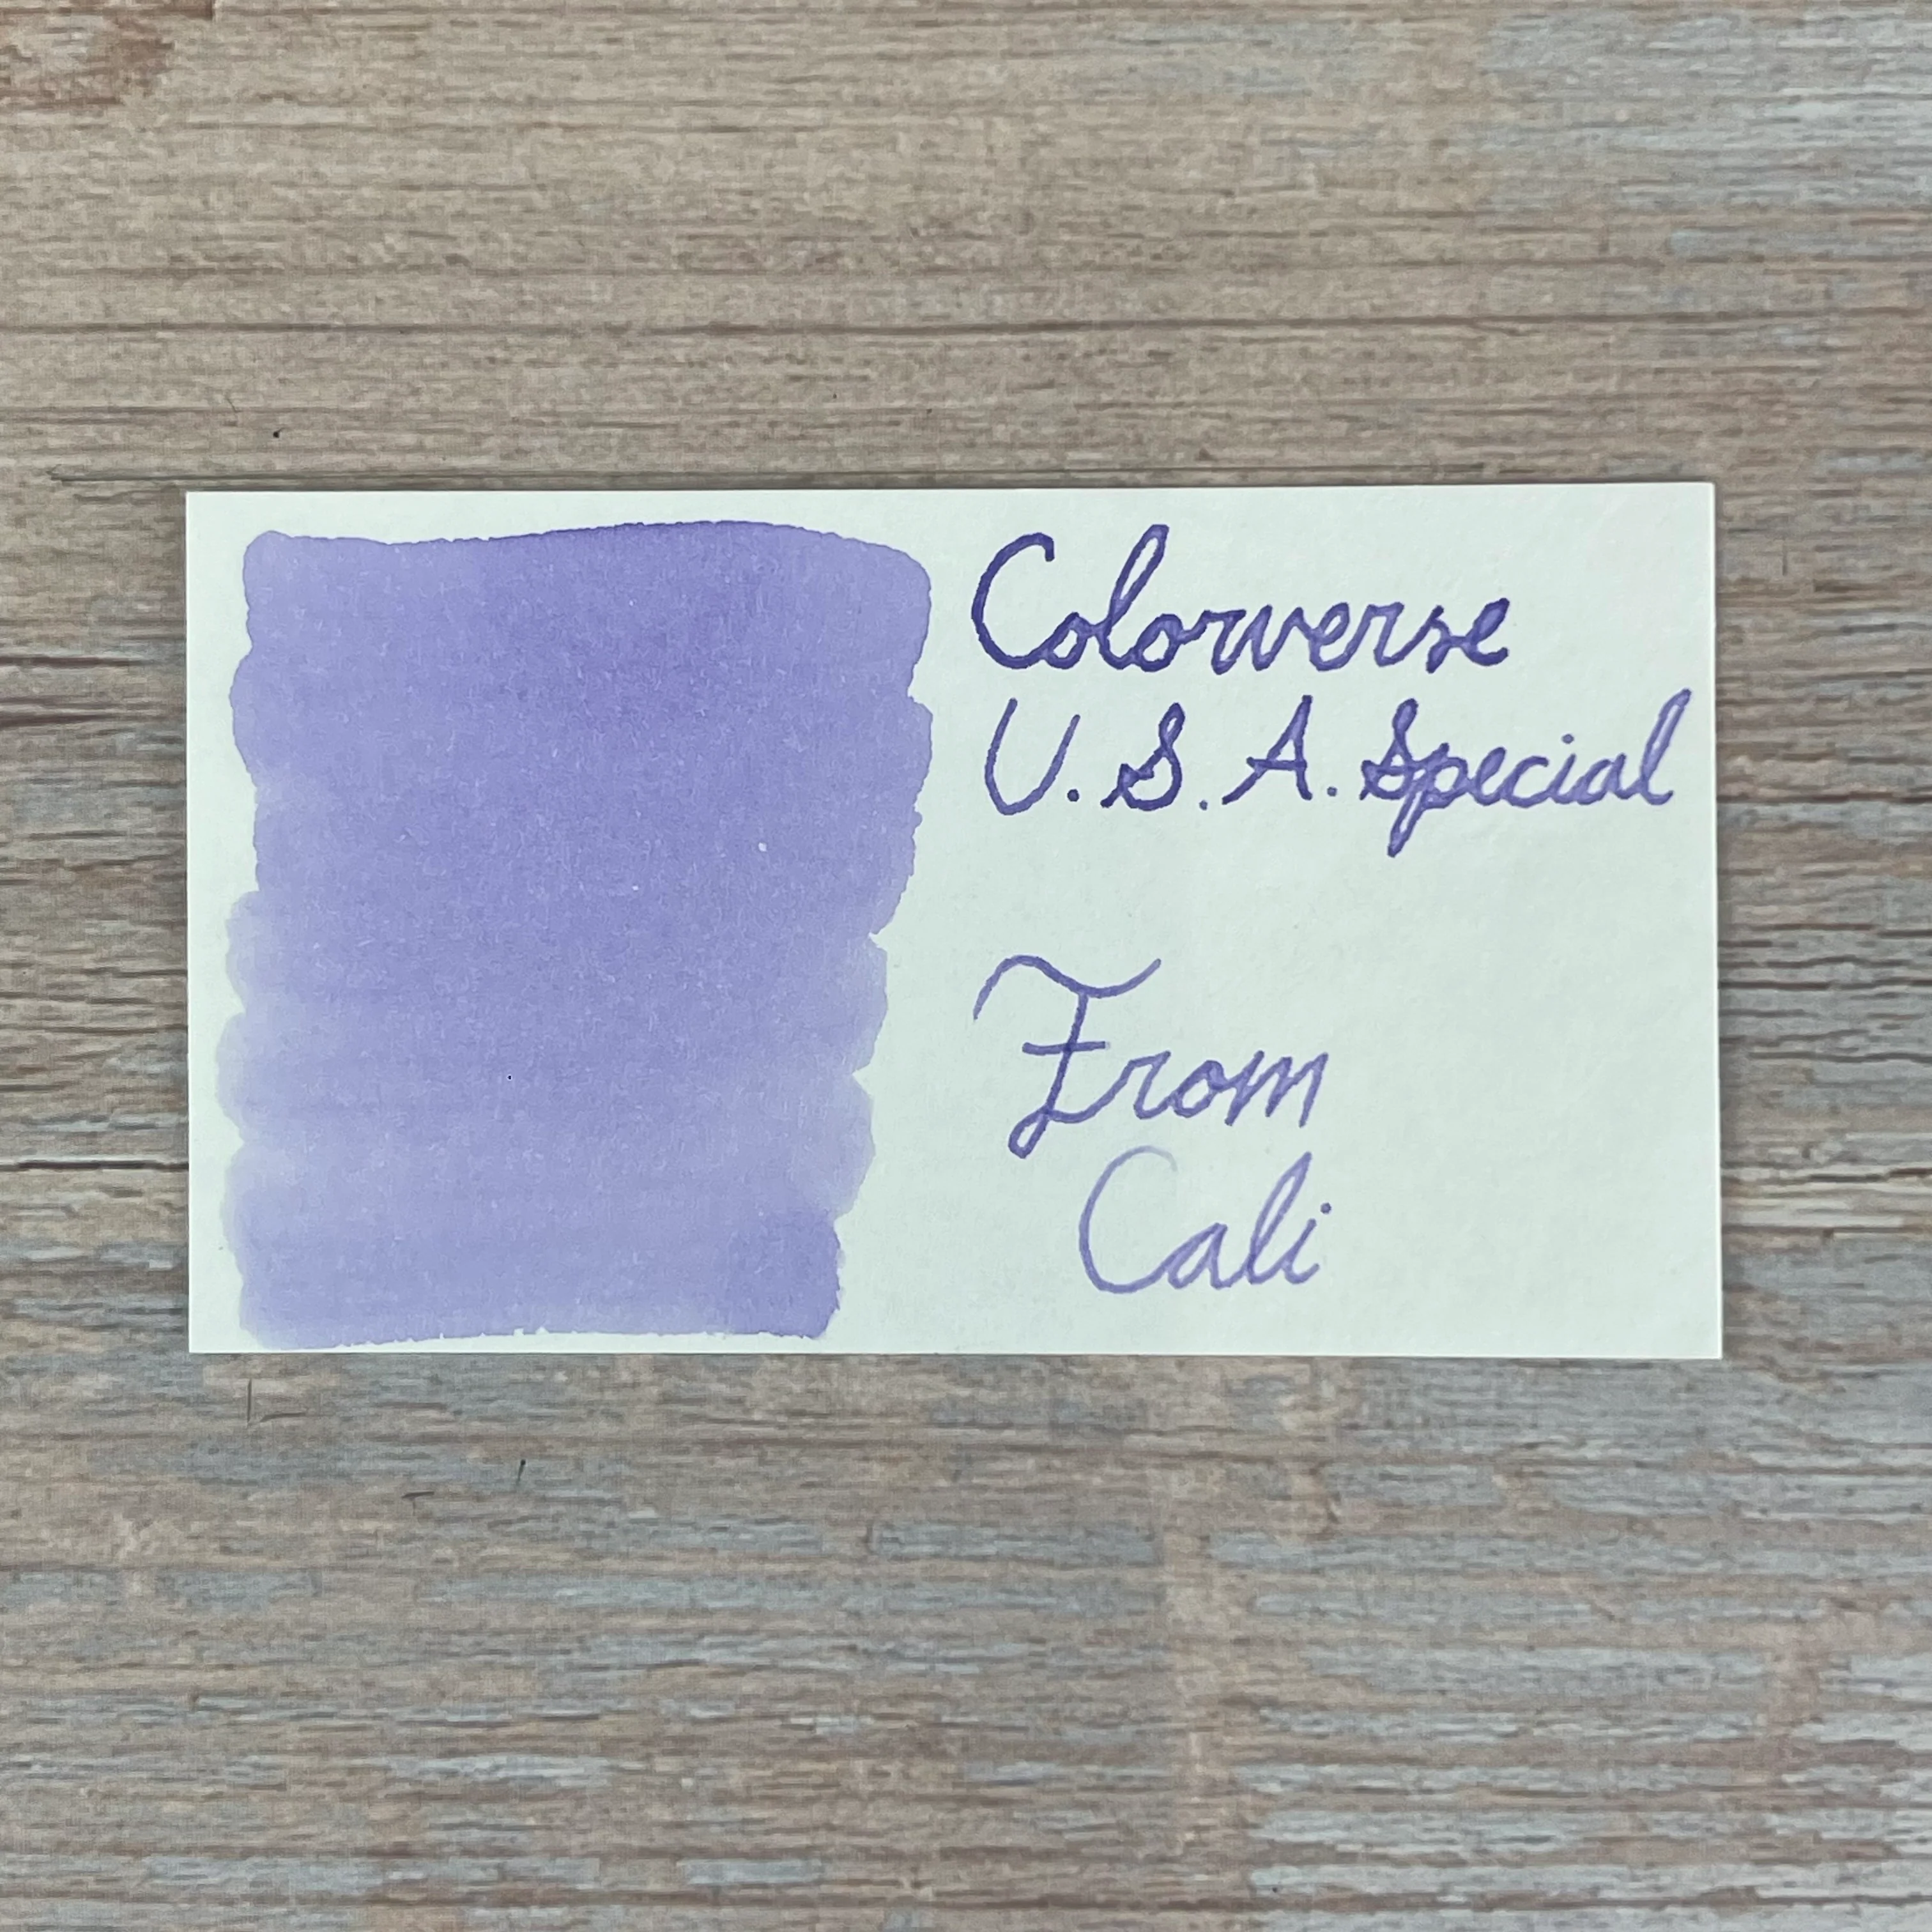 Colorverse
U.S.A. Special
From
Cali